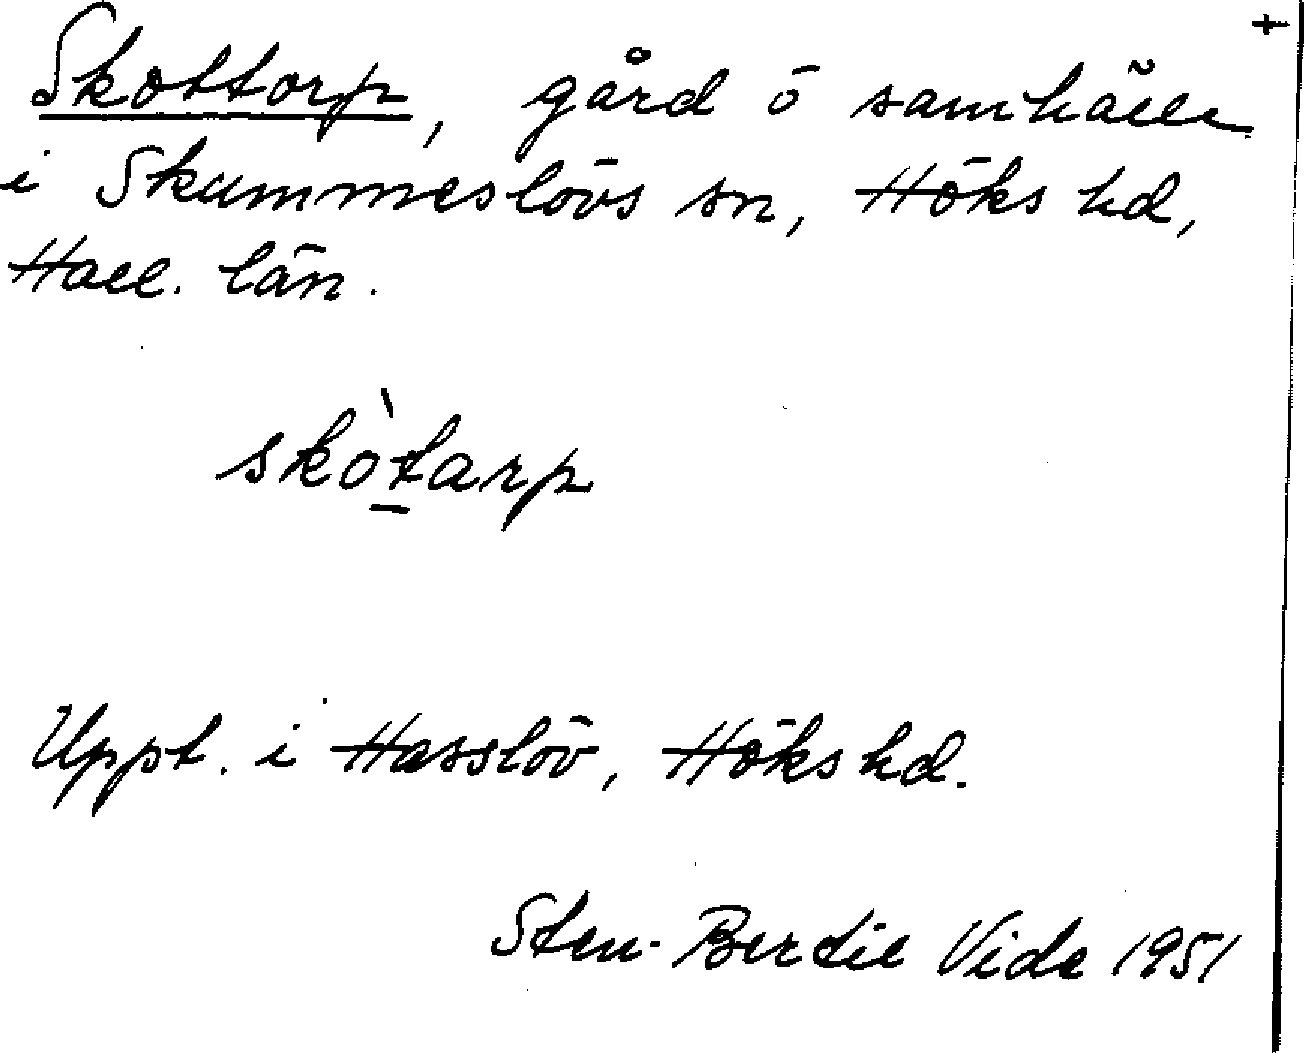 +
Skottorp, gård o samhälle
i Skummeslövs sn, Höks hd,
Hall. län.
skòtarp
Uppt. i Hasslöv, Höks hd.
Sten-Bertil Vide 1951